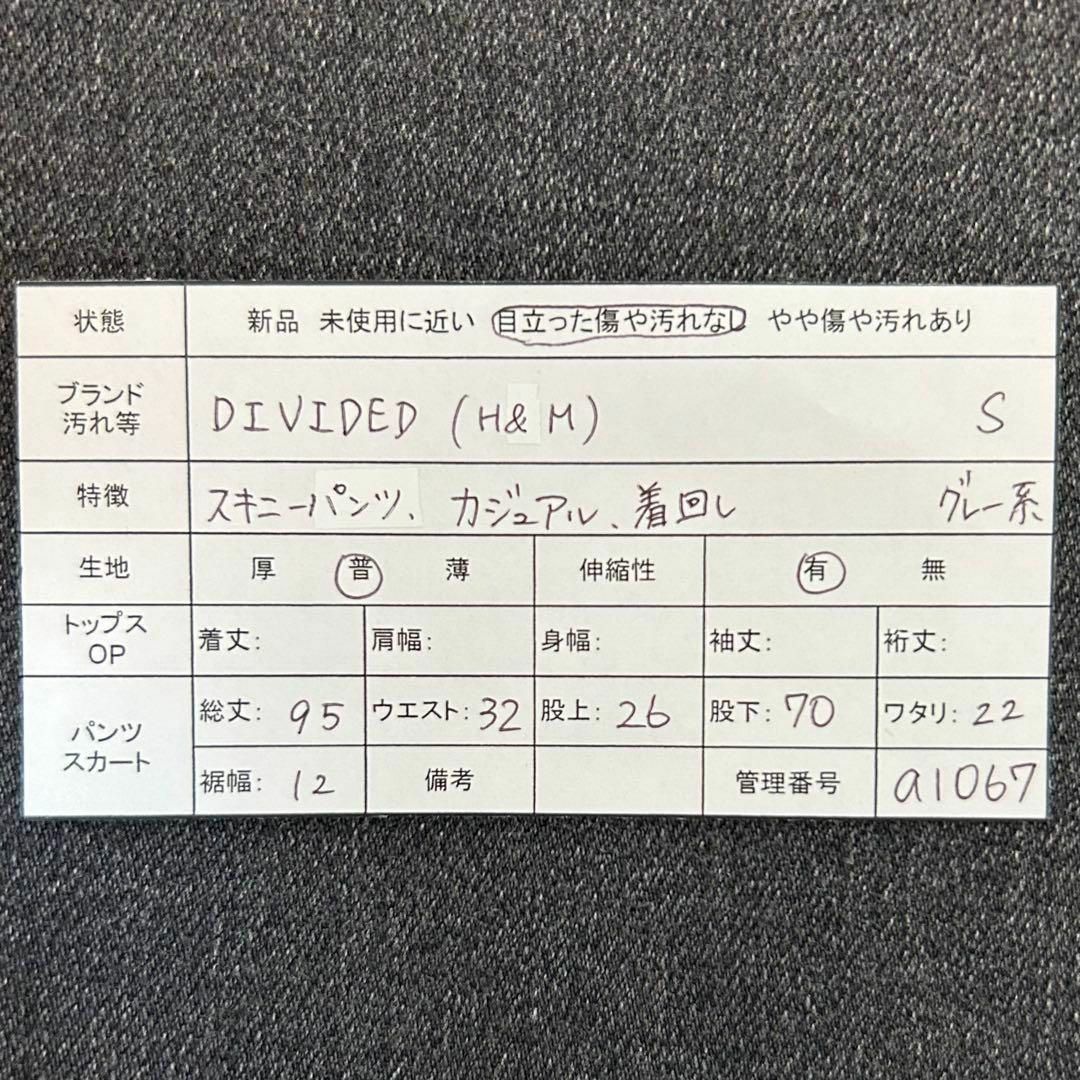 状態 新品 未使用に近い 目立った傷や汚れなし やや傷や汚れあり
ブランド
汚れ等 DIVIDED (H&M) S
特徴 スキニーパンツ、カジュアル、着回し グレー系
生地 厚 普 薄 伸縮性 有 無
トップス
OP 着丈: 肩幅: 身幅: 袖丈: 裄丈:
パンツ
スカート 総丈: 95 ウエスト: 32 股上: 26 股下: 70 ワタリ: 22
裾幅: 12 備考 管理番号 a1067